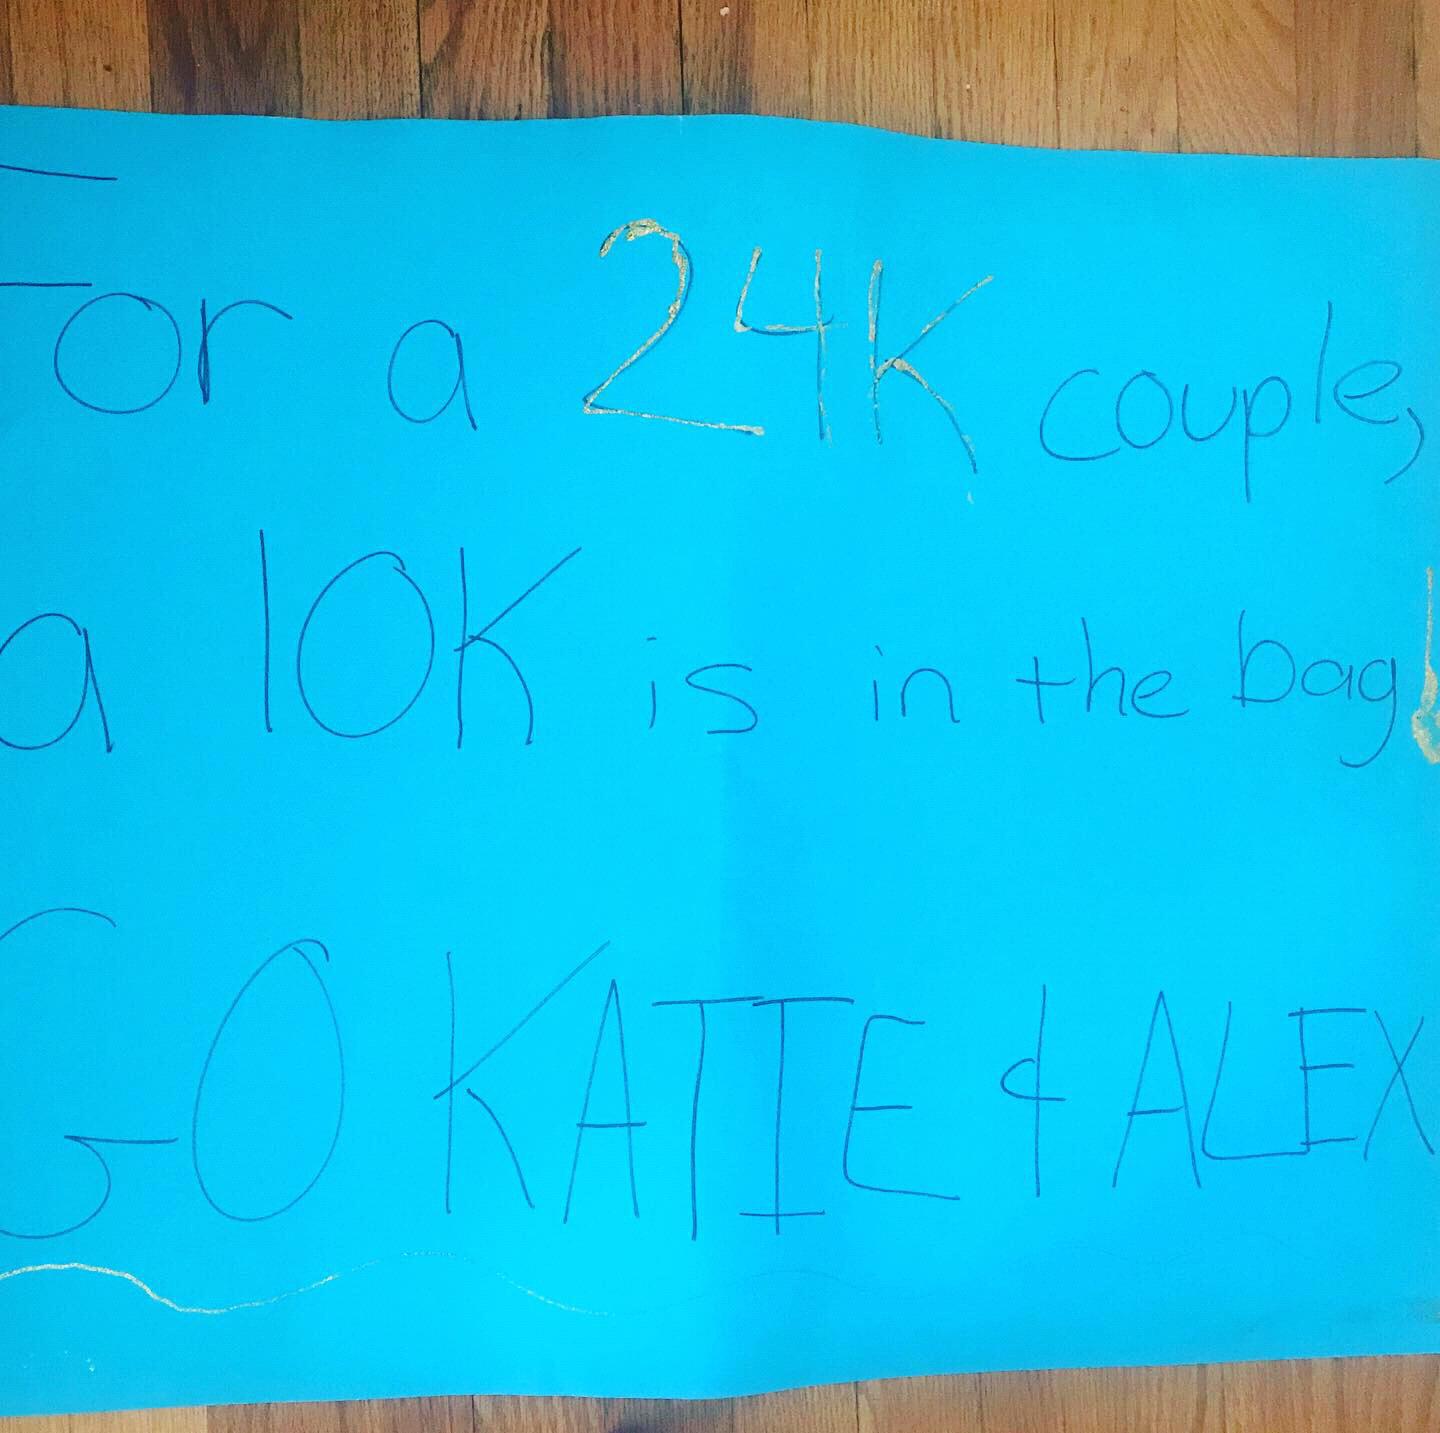 For a 24K couple,
a 10K is in the bag!
GO KATIE & ALEX